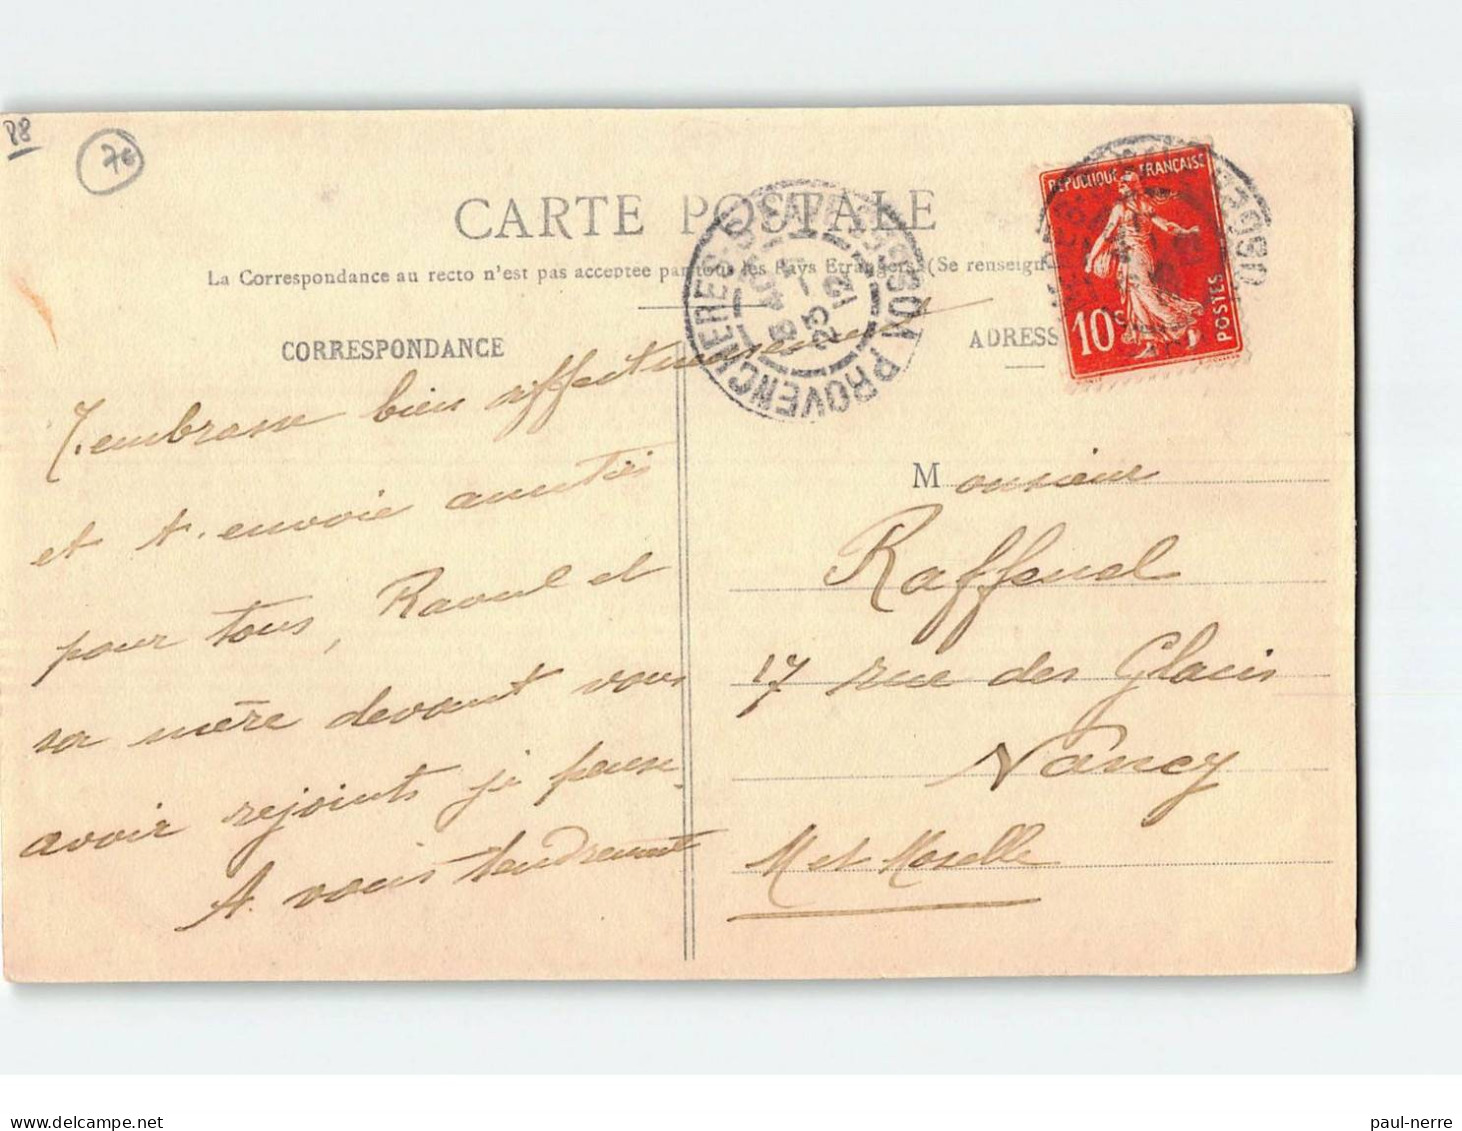 88
7€
CARTE POSTALE
La Correspondance au recto n'est pas acceptée par tous les Pays Etrangers (Se renseign
CORRESPONDANCE
ADRESS
REPUBLIQUE FRANÇAISE
10c
POSTES
PROVENCHERES-S
8 AOUT
12
J.embrasse bien affectueusement
et t.envoie amitiés
pour tous, Raoul et
sa mère devant vous
avoir rejoints je pense.
A. vous tendrement
Monsieur
Raffenel
17 rue des Glacis
Nancy
M et Moselle
paul-nerre